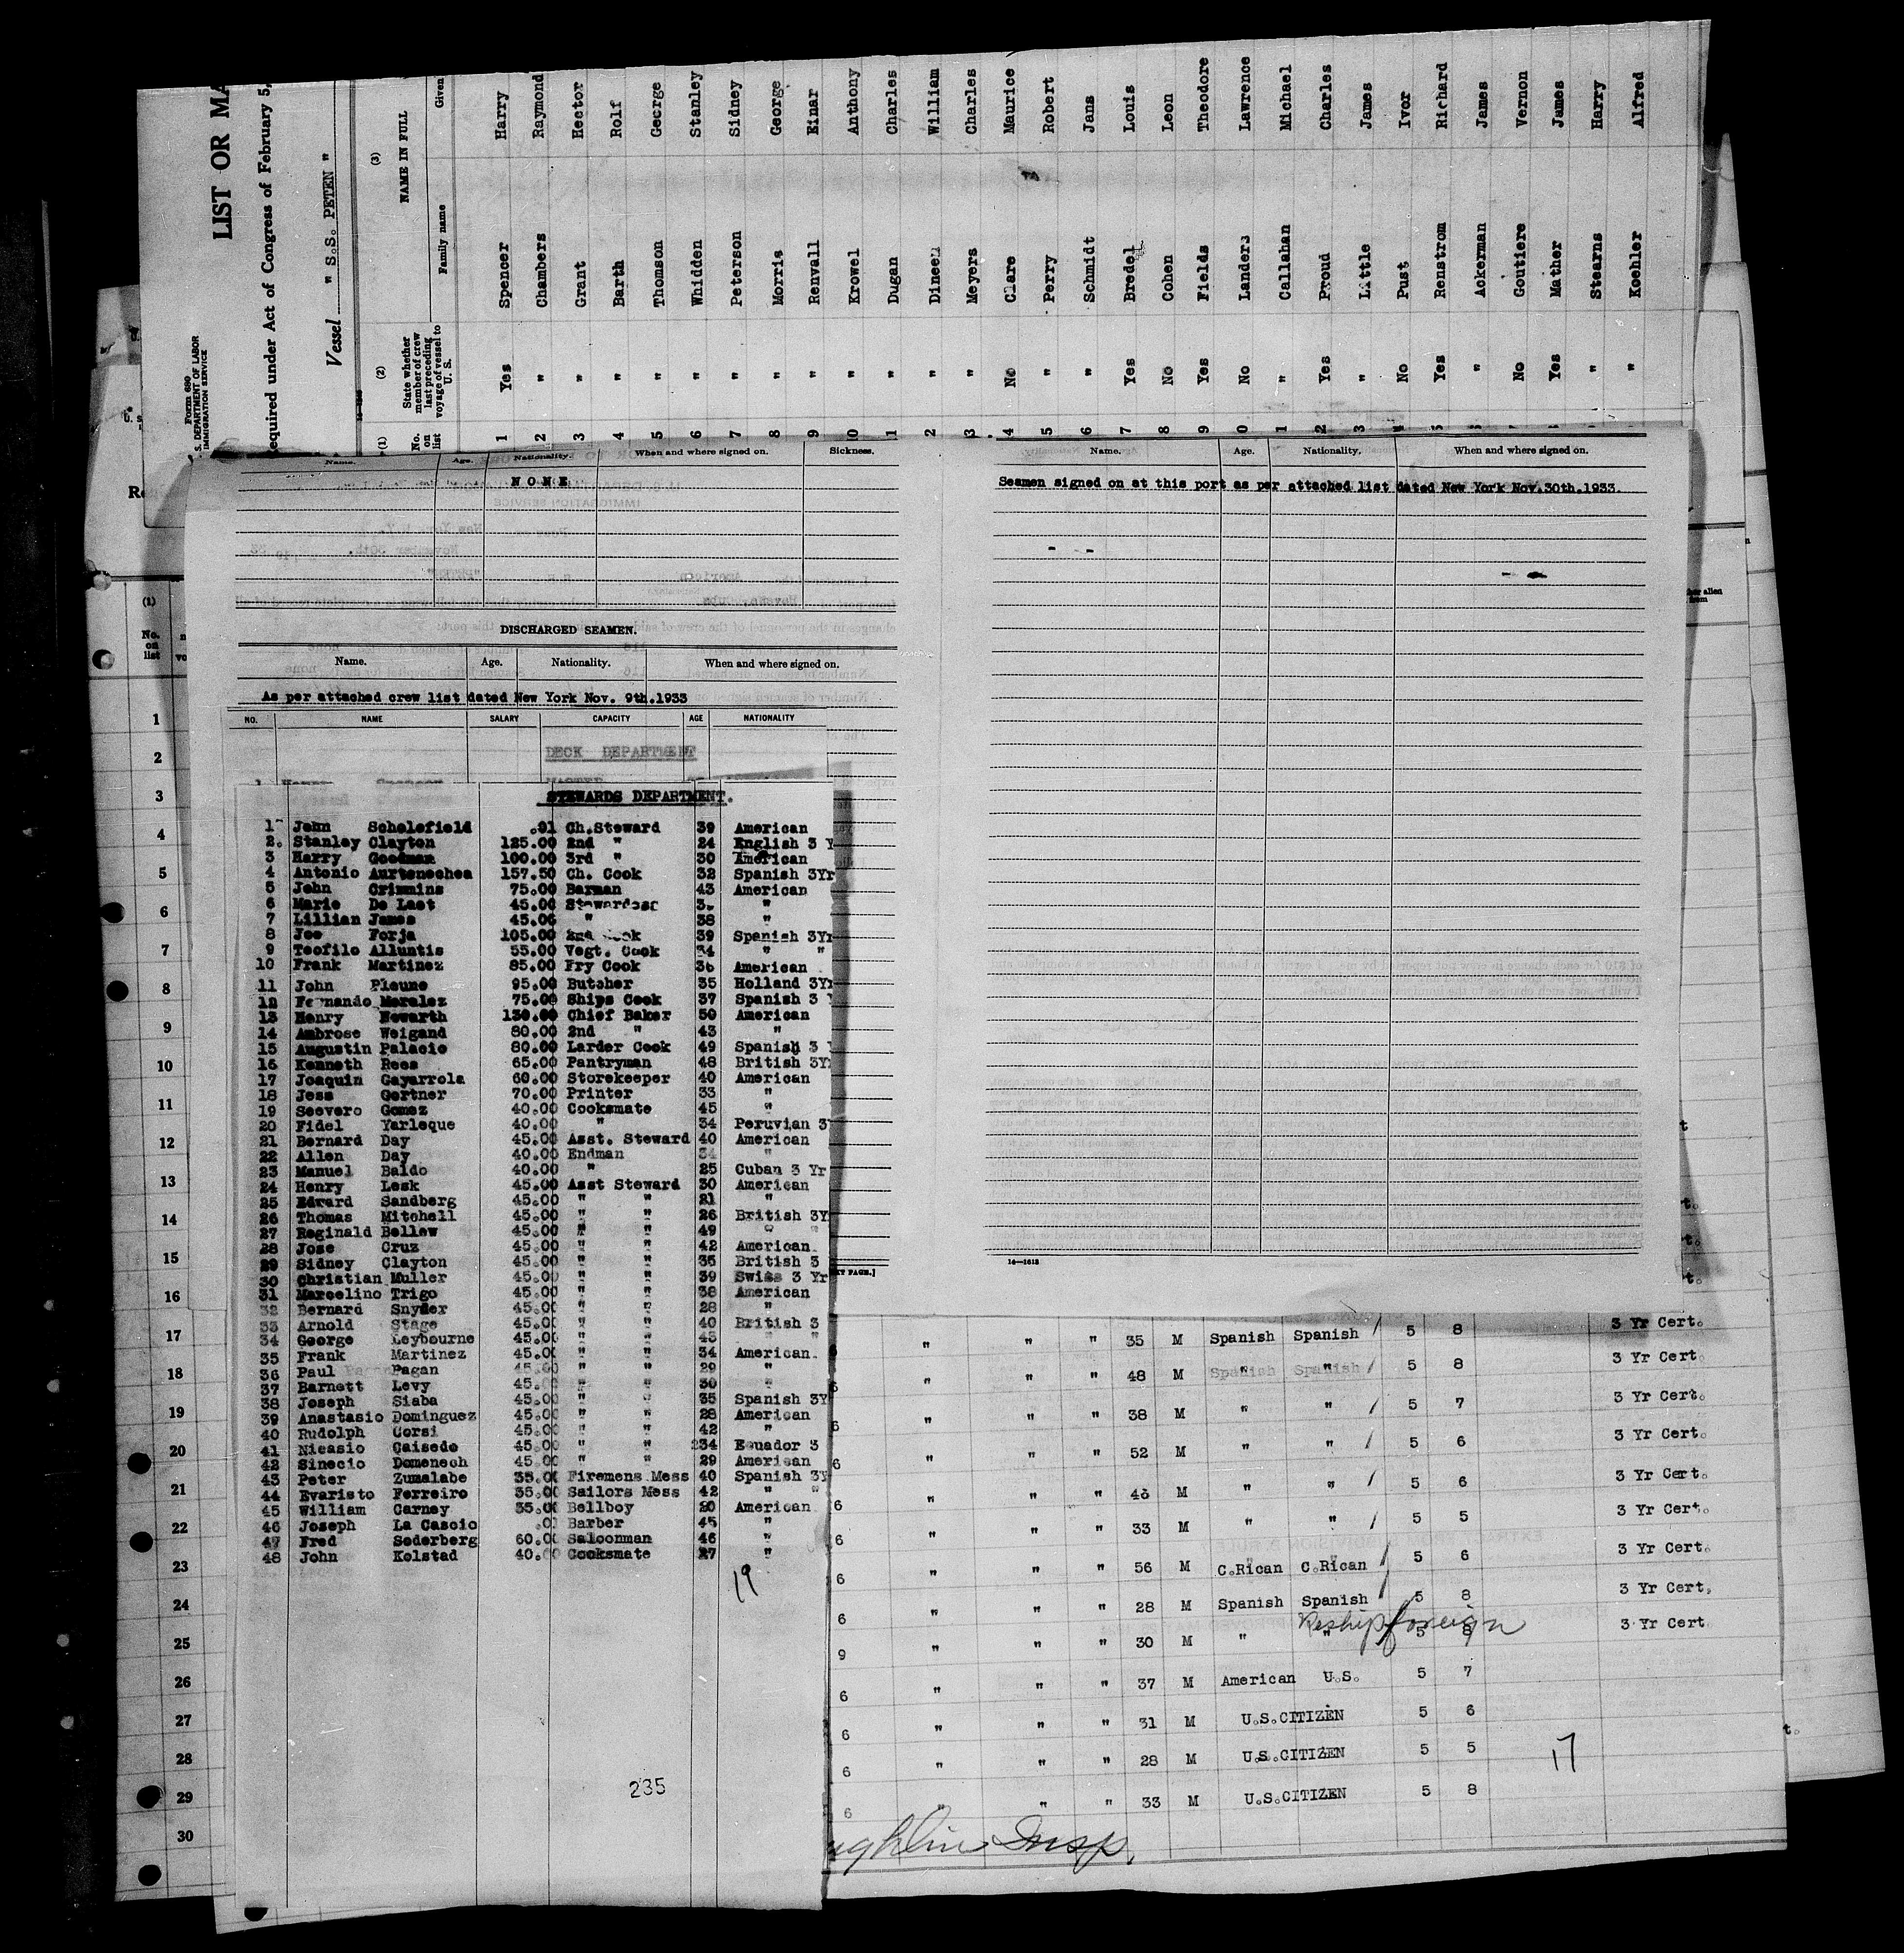 LIST OR MA
equired under Act of Congress of February 5,
Vessel " S.S. PETEN "
Form 680
S. DEPARTMENT OF LABOR
IMMIGRATION SERVICE
(1) (2) (3)
No. on list
State whether member of crew last preceding voyage of vessel to U. S.
NAME IN FULL
Family name Given
1 Yes Spencer Harry
2 " Chambers Raymond
3 " Grant Hector
4 " Barth Rolf
5 " Thomson George
6 " Whidden Stanley
7 " Peterson Sidney
8 " Morris George
9 " Renvall Einar
0 " Krowel Anthony
1 " Dugan Charles
2 " Dineen William
3 " Meyers Charles
4 No Clare Maurice
5 " Perry Robert
6 " Schmidt Jans
7 Yes Bredel Louis
8 No Cohen Leon
9 Yes Fields Theodore
0 No Landers Lawrence
1 " Callahan Michael
2 Yes Proud Charles
3 " Little James
No Pust Ivor
Yes Renstrom Richard
" Ackerman James
No Goutiere Vernon
Yes Mather James
" Stearns Harry
" Koehler Alfred
Name. Age. Nationality. When and where signed on. Sickness.
NONE
DISCHARGED SEAMEN.
Name. Age. Nationality. When and where signed on.
As per attached crew list dated New York Nov. 9th.1933
Name. Age. Nationality. When and where signed on.
Seamen signed on at this port as per attached list dated New York Nov.30th.1933.
14—1613
NO. NAME SALARY CAPACITY AGE NATIONALITY
DECK DEPARTMENT
STEWARDS DEPARTMENT.
1 John Scholefield .01 Ch.Steward 39 American
2. Stanley Clayton 125.00 2nd " 24 English 3 Y
3 Harry Goodman 100.00 3rd " 30 American
4 Antonio Aurtenechea 157.50 Ch. Cook 32 Spanish 3Yr
5 John Crimmins 75.00 Barman 43 American
6 Marie De Laet 45.00 Stewardess "
7 Lillian James 45.00 " 38 "
8 Joe Forja 105.00 2nd Cook 39 Spanish 3Yr
9 Teofilo Alluntis 55.00 Vegt. Cook 34 " "
10 Frank Martinez 85.00 Fry Cook American
11 John Pleune 95.00 Butcher 35 Holland 3Yr
12 Fernando Moralez 75.00 Ships Cook 37 Spanish 3 Y
13 Henry Howarth 130.00 Chief Baker 50 American
14 Ambrose Weigand 80.00 2nd " 43 "
15 Augustin Palacio 80.00 Larder Cook 49 Spanish 3 Y
16 Kenneth Rees 65.00 Pantryman 48 British 3Y
17 Joaquin Gayarrola 60.00 Storekeeper 40 American
18 Jess Gertner 70.00 Printer 33 "
19 Seevero Gomez 40.00 Cooksmate 45 "
20 Fidel Yarleque 40.00 " 34 Peruvian 3Y
21 Bernard Day 45.00 Asst. Steward 40 American
22 Allen Day 40.00 Endman 34 "
23 Manuel Baldo 40.00 " 25 Cuban 3 Yr
24 Henry Lesk 45.00 Asst Steward 30 American
25 Edward Sandberg 45.00 " " 21 "
26 Thomas Mitchell 45.00 " " 26 British 3Y
27 Reginald Bellew 45.00 " " 49 " "
28 Jose Cruz 45.00 " " 42 American
29 Sidney Clayton 45.00 " " 35 British 3
30 Christian Muller 45.00 " " 39 Swiss 3 Yr
31 Marcelino Trigo 45.00 " " 38 American
32 Bernard Snyder 45.00 " " 28 "
33 Arnold Stage 45.00 " " 40 British 3
34 George Leybourne 45.00 " " 43 " "
35 Frank Martinez 45.00 " " 34 American
36 Paul Pagan 45.00 " " 29 "
37 Barnett Levy 45.00 " " 30 "
38 Joseph Siaba 45.00 " " 35 Spanish 3Y
39 Anastasio Dominguez 45.00 " " 28 American
40 Rudolph Corsi 45.00 " " 42 "
41 Nicasio Caisedo 45.00 " " 234 Ecuador 3
42 Sinecio Domenech 45.00 " " 29 American
43 Peter Zumalabe 35.00 Firemens Mess 40 Spanish 3Y
44 Evaristo Ferreiro 35.00 Sailors Mess 42 " "
45 William Carney 35.00 Bellboy 20 American
46 Joseph La Cascio .01 Barber 45 "
47 Fred Soderberg 60.00 Saloonman 46 "
48 John Kolstad 40.00 Cooksmate 27 "
19
235
(1)
No. on list
1
2
3
4
5
6
7
8
9
10
11
12
13
14
15
16
17
18
19
20
21
22
23
24
25
26
27
28
29
30
XT PAGE.]
" " " 35 M Spanish Spanish / 5 8 3 Yr Cert.
" " " 48 M " " / 5 8 3 Yr Cert.
" " " 38 M " " / 5 7 3 Yr Cert.
" " " 52 M " " / 5 6 3 Yr Cert.
" " " 46 M " " / 5 6 3 Yr Cert.
6 " " " 33 M " " / 5 5 3 Yr Cert.
6 " " " 56 M C.Rican C.Rican / 5 6 3 Yr Cert.
6 " " " 28 M Spanish Spanish / 5 8 3 Yr Cert.
Reship foreign
9 " " " 30 M " " 5 8 3 Yr Cert
6 " " " 37 M American U.S. 5 7
6 " " " 31 M U.S.CITIZEN 5 6
6 " " " 28 M U.S.CITIZEN 5 5
17
6 " " " 33 M U.S.CITIZEN 5 8
ughlin Insp.